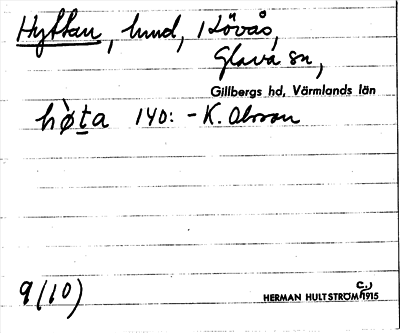 Hyttan, lund, i Lövås,
Glava sn,
Gillbergs hd, Värmlands län
hø̀ta 140: - K. Olsson
9/10)
HERMAN HULTSTRÖM c:a 1915